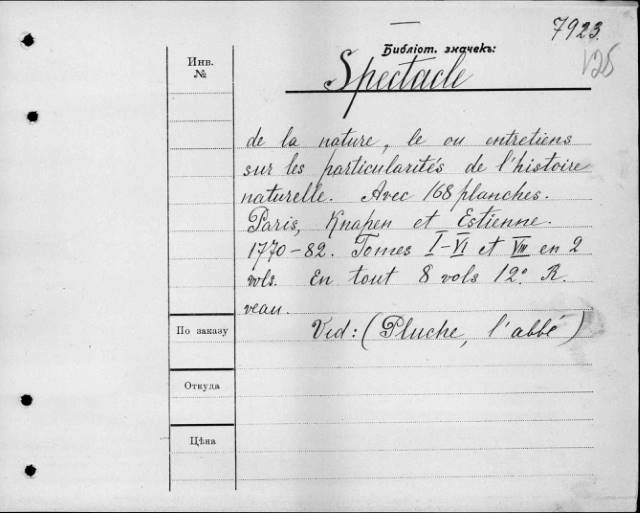 7923.
Библіот. значекъ:
Инв.
№
Spectacle
de la nature, le ou entretiens
sur les particularités de l'histoire
naturelle. Avec 168 planches.
Paris, Knapen et Estienne.
1770-82. Tomes I-VI et VIII en 2
vols. En tout 8 vols 12º. R.
veau.
Vid: (Pluche, l'abbé)
По заказу
Откуда
Цѣна